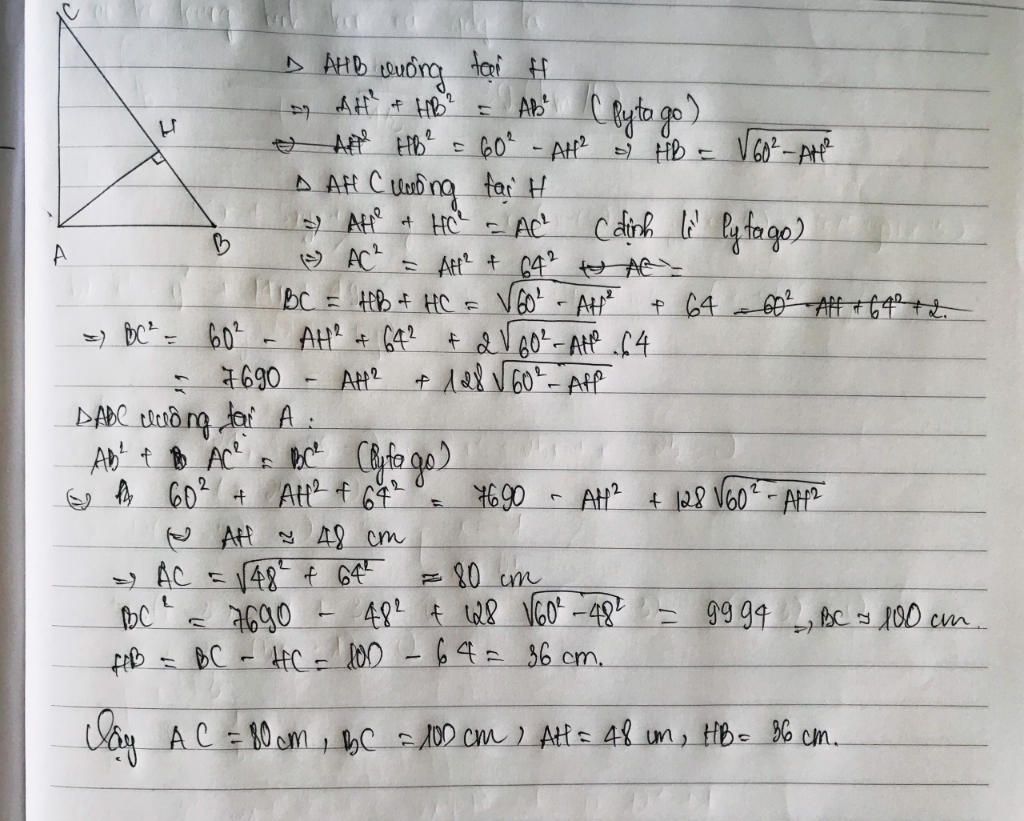 C
H
A
B
Δ AHB vuông tại H
=> AH² + HB² = AB² (Pytago)
<=> AH² HB² = 60² - AH² => HB = √60² - AH²
Δ AHC vuông tại H
=> AH² + HC² = AC² (định lí Pytago)
<=> AC² = AH² + 64² <=> AC =
BC = HB + HC = √60² - AH² + 64 = 60² - AH + 64² + 2.
=> BC² = 60² - AH² + 64² + 2√60² - AH² .64
= 7690 - AH² + 128√60² - AH²
ΔABC vuông tại A :
AB² + AC² = BC² (Pytago)
<=> 60² + AH² + 64² = 7690 - AH² + 128√60² - AH²
<=> AH ≈ 48 cm
=> AC = √48² + 64² = 80 cm
BC² = 7690 - 48² + 128 √60² - 48² = 9994 => BC ≈ 100 cm.
HB = BC - HC = 100 - 64 = 36 cm.
Vậy AC = 80 cm, BC = 100 cm, AH = 48 cm, HB = 36 cm.